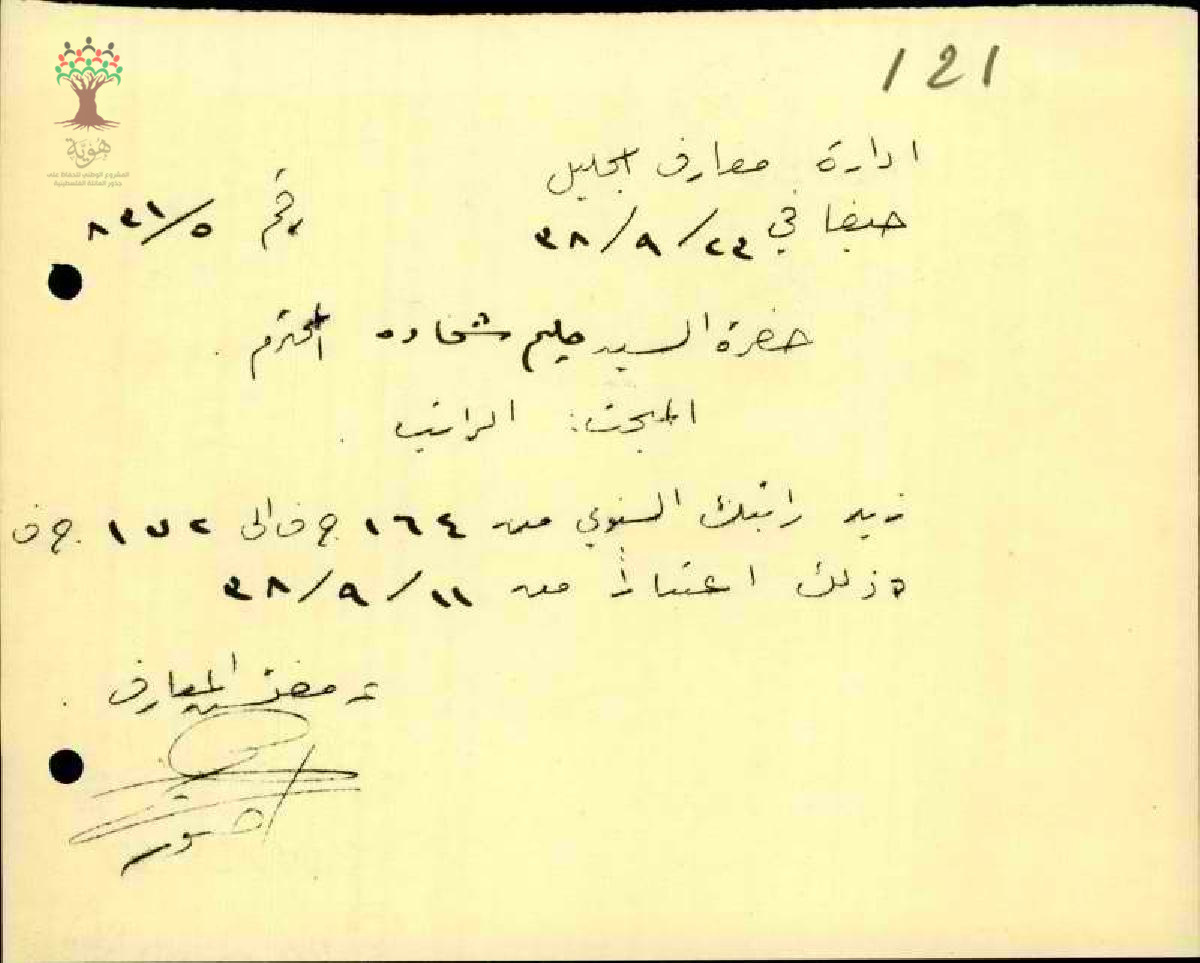 121
هُوِيَّة
المشروع الوطني للحفاظ على
جذور العائلة الفلسطينية
ادارة معارف الجليل
حيفا في ٢٣/٩/٣٨ رقم ٥/٨٣١
حضرة السيد حليم شحاده المحترم
المبحث: الراتب
زيد راتبك السنوي من ١٦٤ ج ف الى ١٧٢ ج ف
وذلك اعتباراً من ١١/٩/٣٨
مفتش المعارف